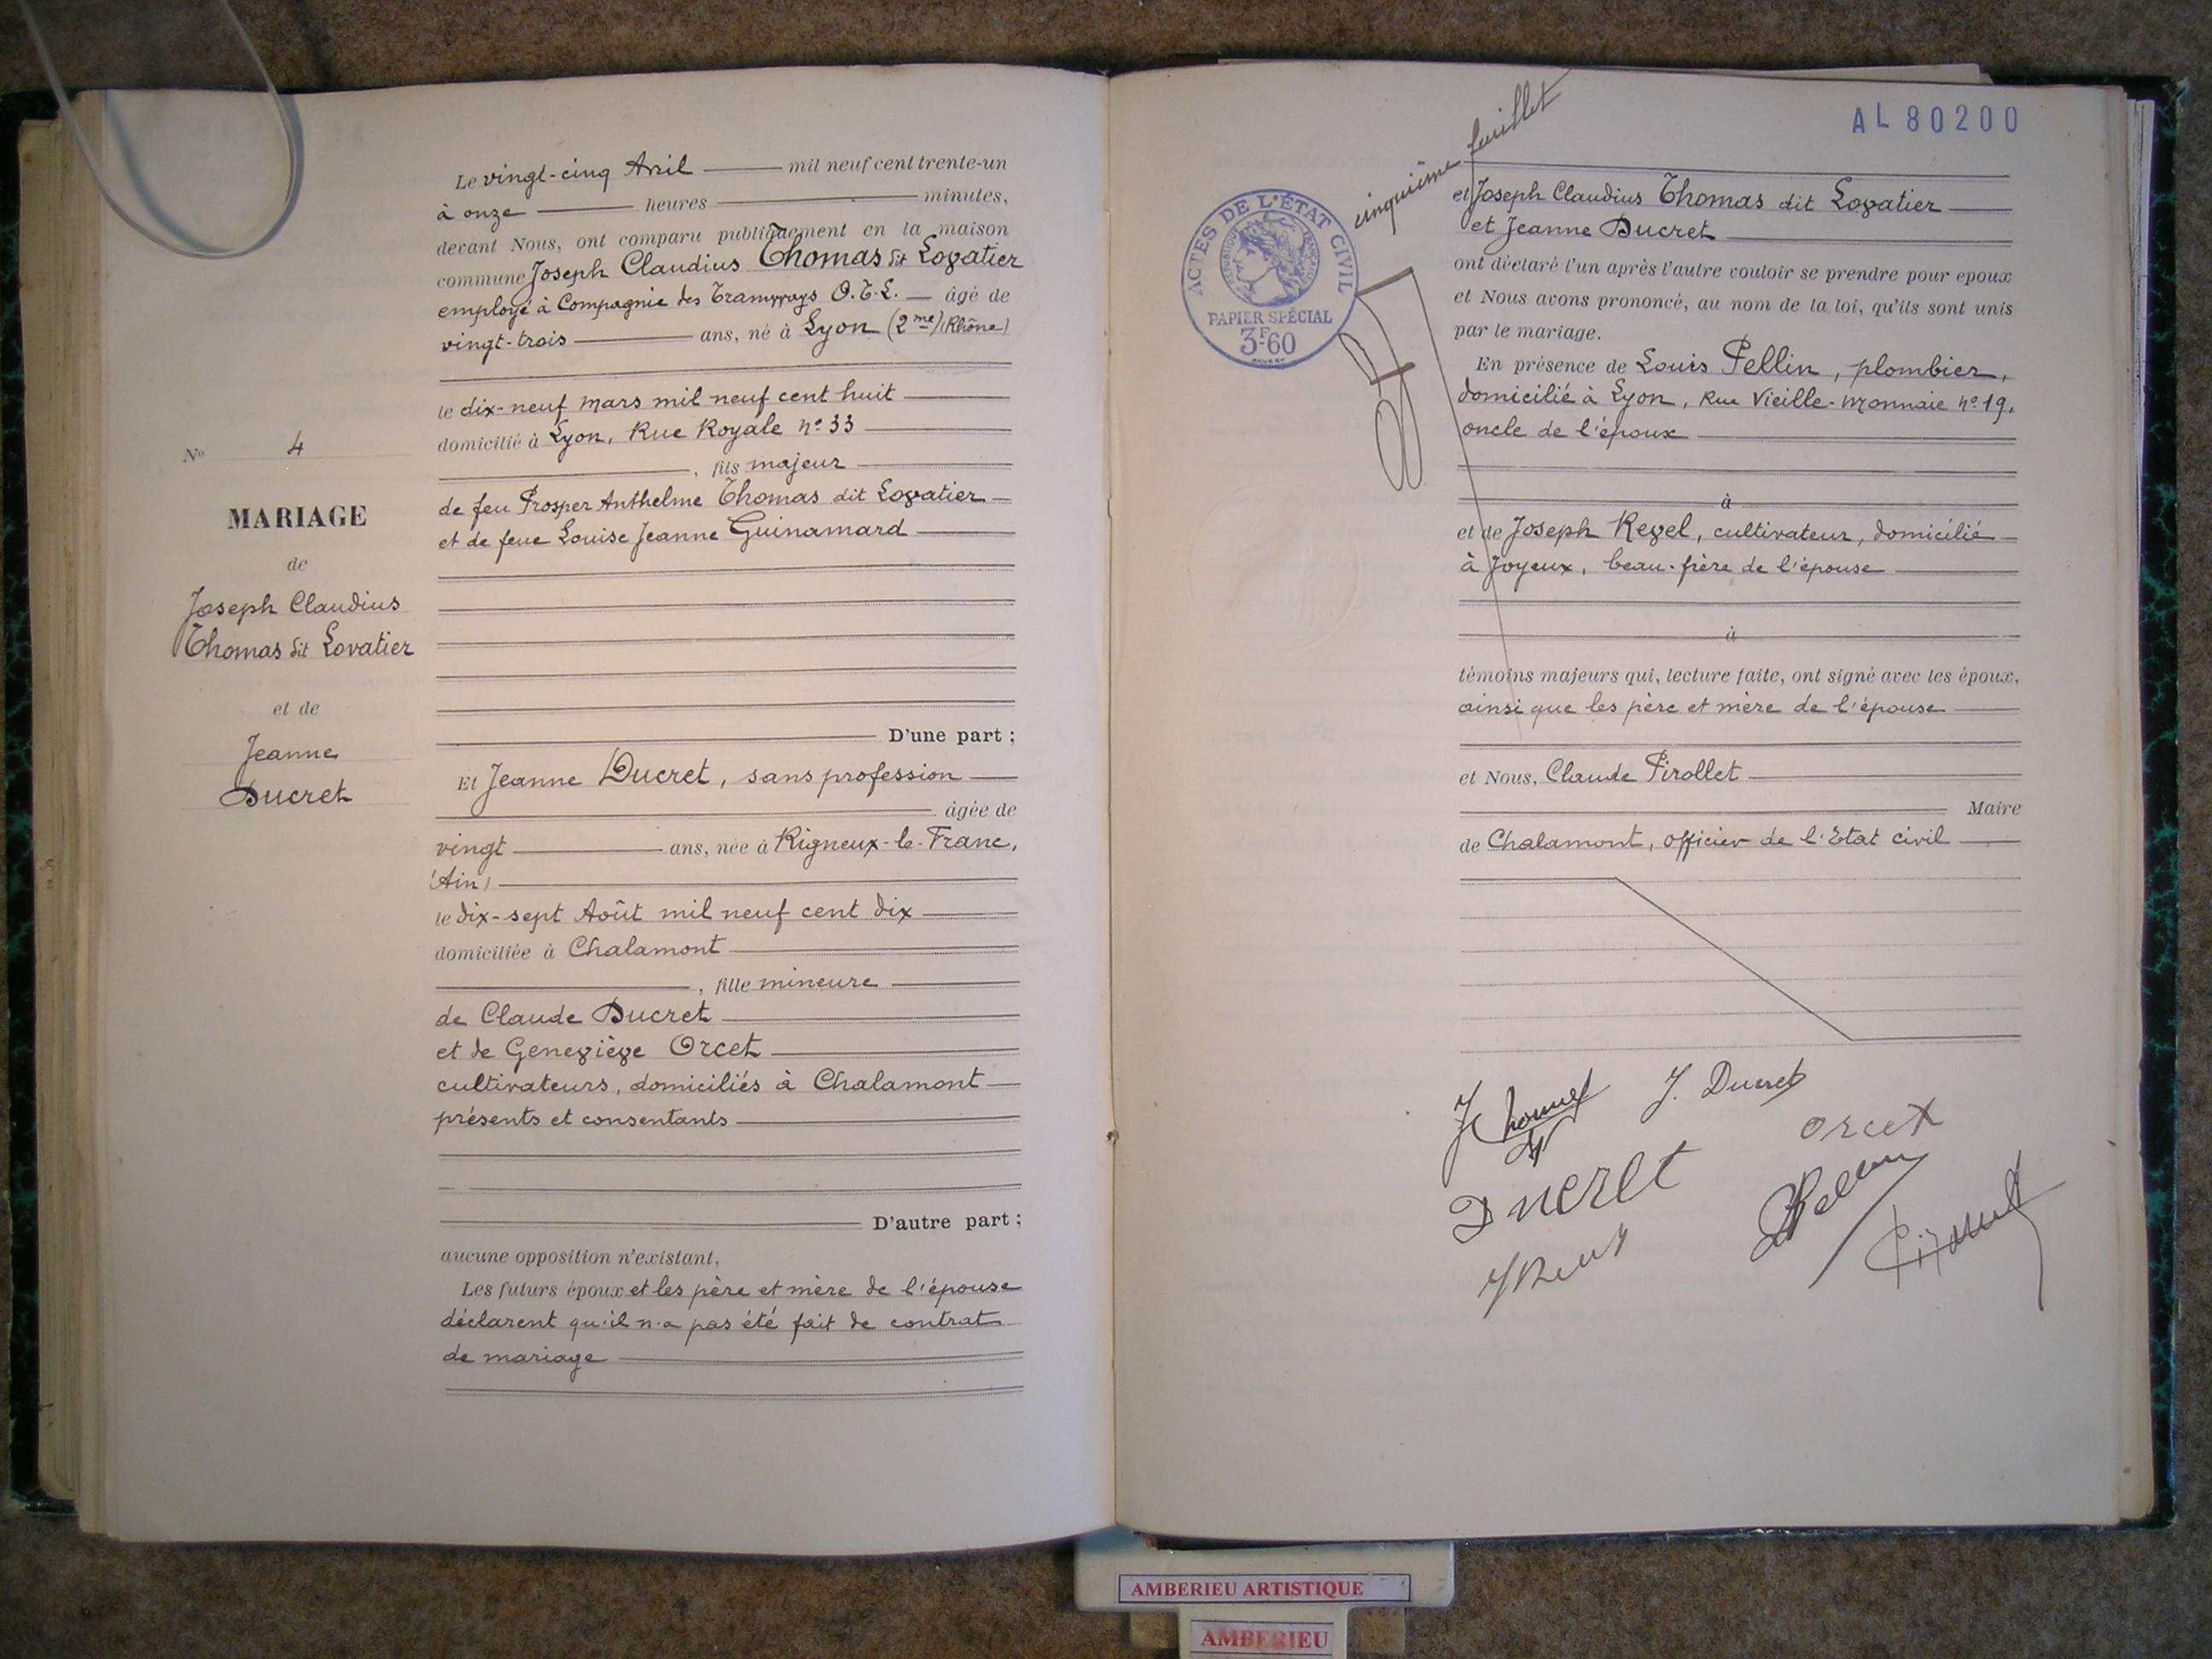 Le vingt-cinq Avril mil neuf cent trente-un
à onze heures minutes,
devant Nous, ont comparu publiquement en la maison
commune Joseph Claudius Thomas dit Lovatier
employé à Compagnie des Tramways O.T.L. âgé de
vingt-trois ans, né à Lyon (2me) (Rhône)
le dix-neuf mars mil neuf cent huit
domicilié à Lyon, Rue Royale nº 33
, fils majeur
de feu Prosper Anthelme Thomas dit Lovatier
et de feue Louise Jeanne Guinamard
D'une part ;
Et Jeanne Ducret, sans profession
âgée de
vingt ans, née à Rigneux-le-Franc,
(Ain)
le dix-sept Août mil neuf cent dix
domiciliée à Chalamont
, fille mineure
de Claude Ducret
et de Geneviève Orcet
cultivateurs, domiciliés à Chalamont
présents et consentants
D'autre part ;
aucune opposition n'existant,
Les futurs époux et les père et mère de l'épouse
déclarent qu'il n'a pas été fait de contrat
de mariage
Nº 4
MARIAGE
de
Joseph Claudius
Thomas dit Lovatier
et de
Jeanne
Ducret
cinquième feuillet
AL 80200
ACTES DE L'ÉTAT CIVIL
RÉPUBLIQUE FRANÇAISE
PAPIER SPÉCIAL
3F60
et Joseph Claudius Thomas dit Lovatier
et Jeanne Ducret
ont déclaré l'un après l'autre vouloir se prendre pour époux
et Nous avons prononcé, au nom de la loi, qu'ils sont unis
par le mariage.
En présence de Louis Pellin, plombier,
domicilié à Lyon, Rue Vieille-Monnaie nº 19,
oncle de l'époux
à
et de Joseph Revel, cultivateur, domicilié
à Joyeux, beau-frère de l'épouse
à
témoins majeurs qui, lecture faite, ont signé avec les époux,
ainsi que les père et mère de l'épouse
et Nous, Claude Pirollet
Maire
de Chalamont, officier de l'Etat civil
J Thomas J. Ducret
orcet
Ducret
AMBERIEU ARTISTIQUE
AMBERIEU